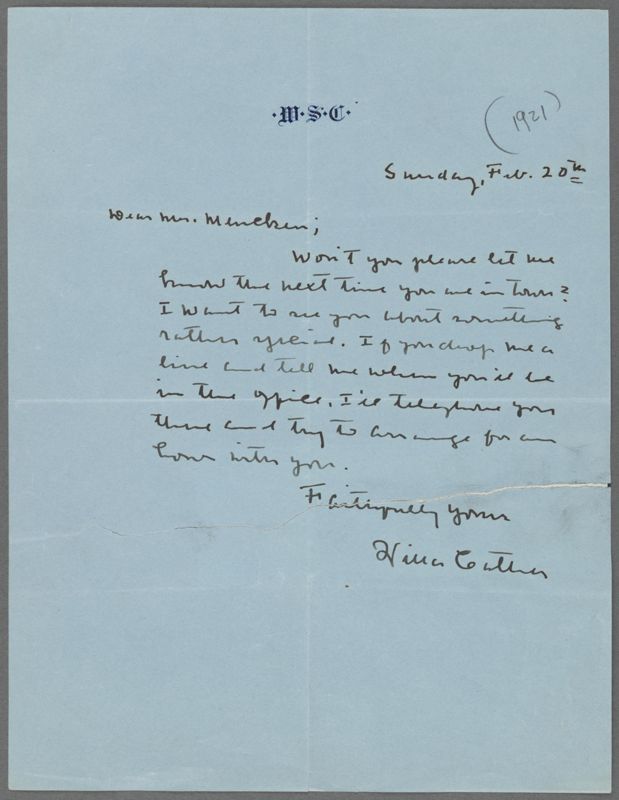 ·W·S·C·
(1921)
Sunday, Feb. 20th
Dear Mr. Mencken;
Won't you please let me
know the next time you are in town?
I want to see you about something
rather special. If you drop me a
line and tell me when you'll be
in the office, I'll telephone you
there and try to arrange for an
hour with you.
Faithfully yours
Willa Cather